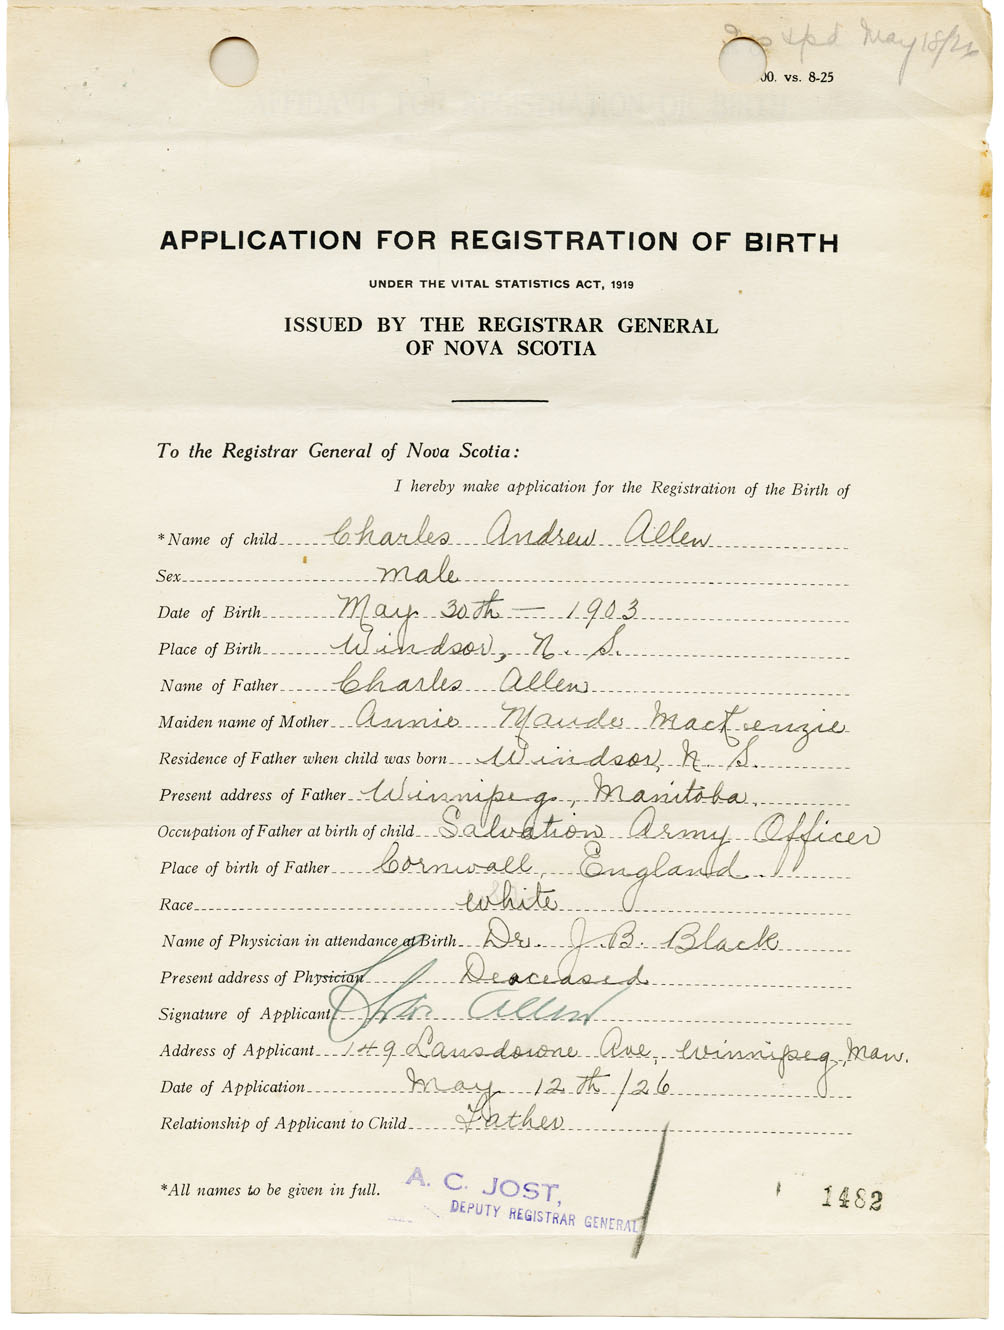 Insp'd May 18/26
00. vs. 8-25
APPLICATION FOR REGISTRATION OF BIRTH
UNDER THE VITAL STATISTICS ACT, 1919
ISSUED BY THE REGISTRAR GENERAL
OF NOVA SCOTIA
To the Registrar General of Nova Scotia:
I hereby make application for the Registration of the Birth of
*Name of child Charles Andrew Allen
Sex male
Date of Birth May 30th — 1903
Place of Birth Windsor, N. S.
Name of Father Charles Allen
Maiden name of Mother Annie Maude MacKenzie
Residence of Father when child was born Windsor, N. S.
Present address of Father Winnipeg, Manitoba.
Occupation of Father at birth of child Salvation Army Officer
Place of birth of Father Cornwall, England.
Race white
Name of Physician in attendance at Birth Dr. J. B. Black
Present address of Physician Deaceased
Signature of Applicant Allen
Address of Applicant 149 Lansdowne Ave, Winnipeg, Man.
Date of Application May 12th /26
Relationship of Applicant to Child Father
*All names to be given in full.
A. C. JOST,
DEPUTY REGISTRAR GENERAL
1482